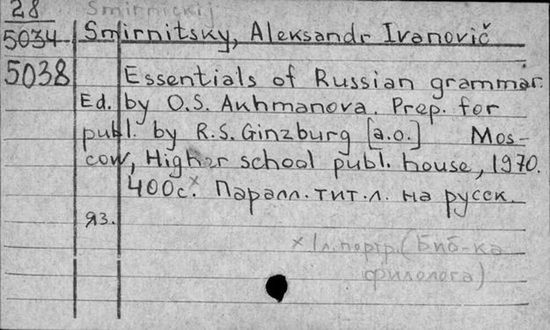 28 Smirnickij
5034 Smirnitsky, Aleksandr Ivanovič
5038 Essentials of Russian grammar.
Ed. by O.S. Akhmanova. Prep. for
publ. by R.S. Ginzburg [a.o.] Mos-
cow, Higher school publ. house, 1970.
400с.× Паралл. тит. л. на русск.
яз.
× 1 л. портр. (Биб-ка
филолога)